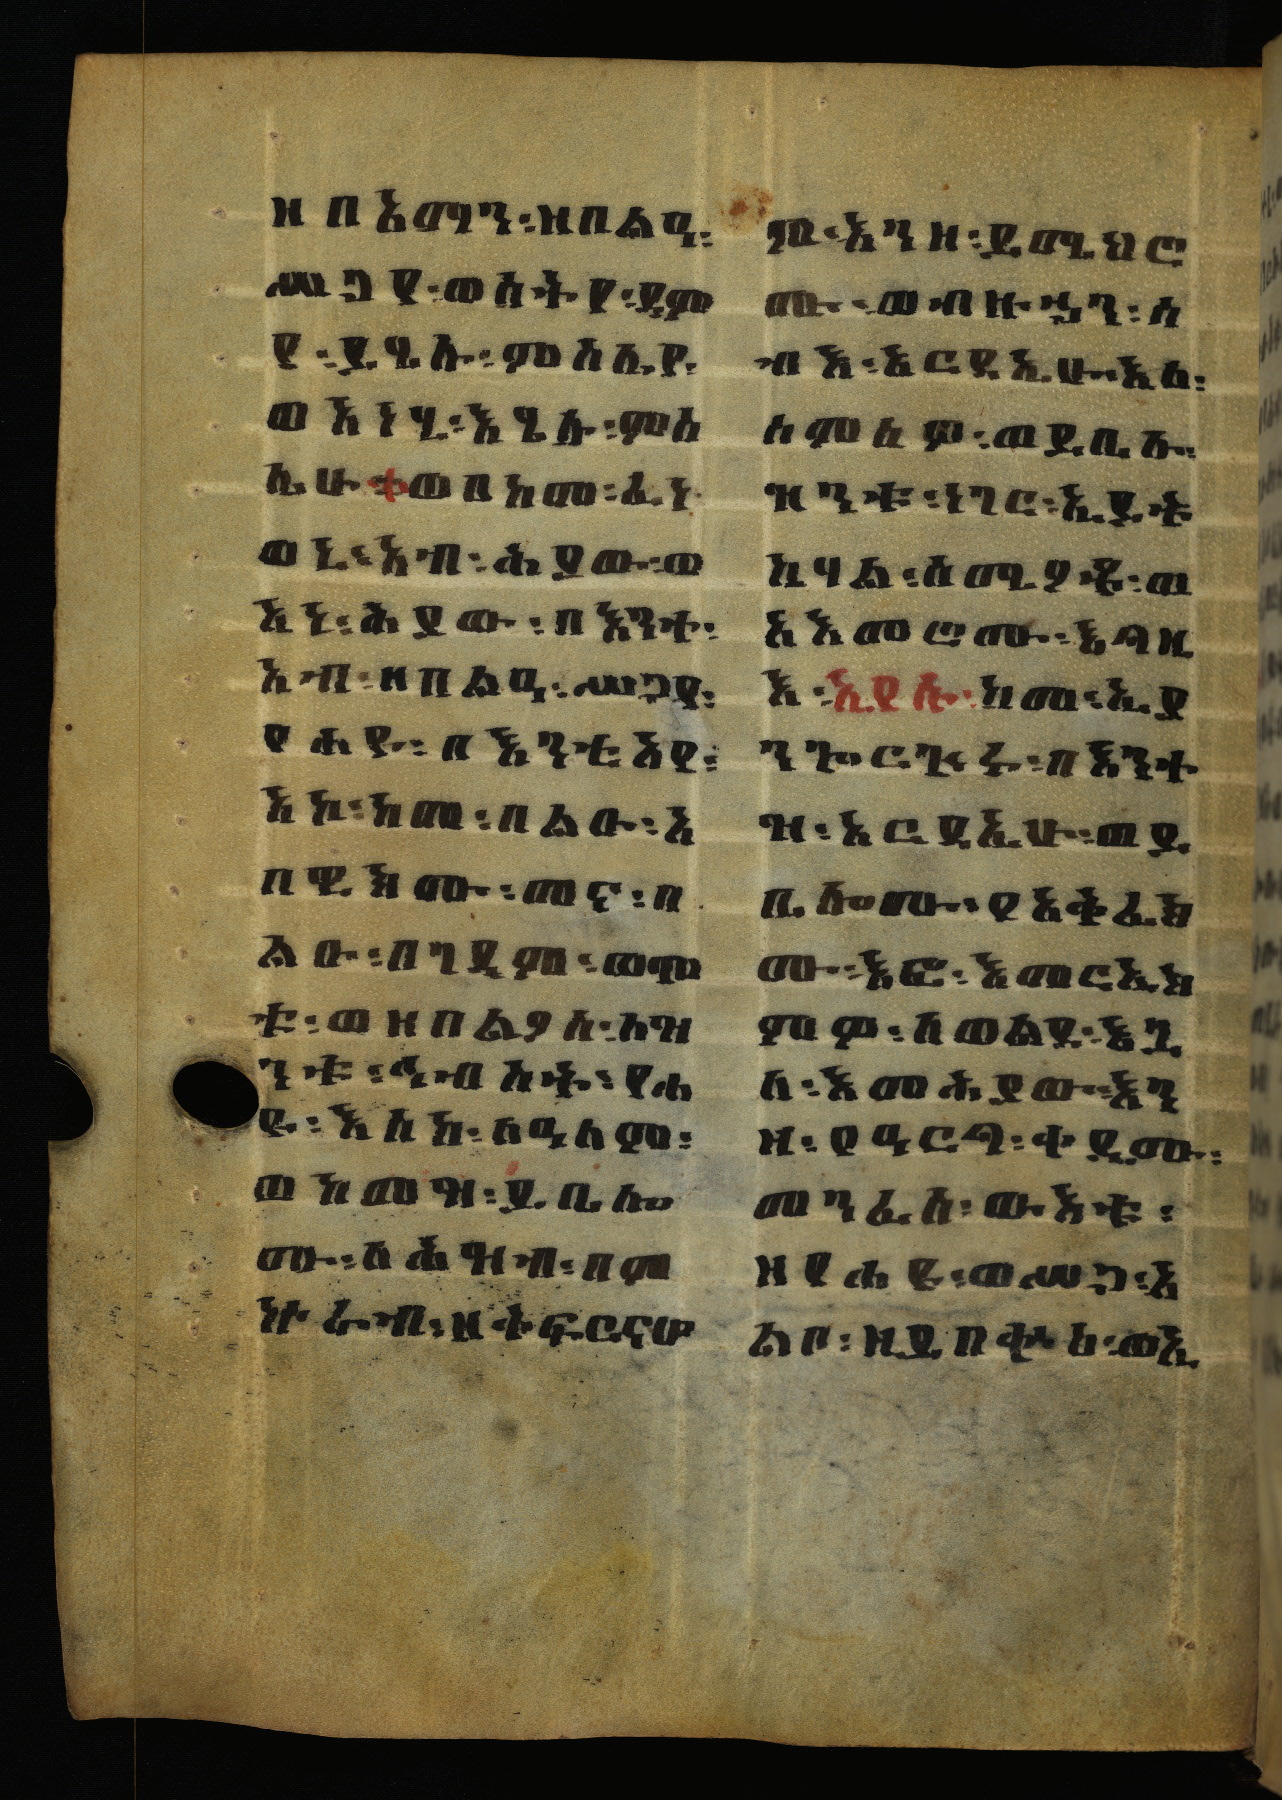 ዘበአማን፡ዘበልዒ፡
ሥጋየ፡ወሰትየ፡ደም
የ፡ይሄሉ፡ምስሌየ፡
ወአነሂ፡እሄሉ፡ምስ
ሌሁ።ወበከመ፡ፈነ
ወኒ፡አብ፡ሕያው፡ወ
አነ፡ሕያው፡በእንተ፡
አብ፡ዘበልዒ፡ሥጋየ፡
የሐዩ፡በእንቲአየ፡
አኮ፡ከመ፡በልዑ፡አ
በዊክሙ፡መና፡በ
ልዑ፡በገዳም፡ወሞ
ቱ፡ወዘበልዖ፡ለዝ
ንቱ፡ኅብስት፡የሐ
ዩ፡እስከ፡ለዓለም፡
ወከመዝ፡ይቤሎ
ሙ፡በሕዝብ፡በም
ኵራብ፡ዘቅፍርናሆ
ም፡እንዘ፡ይሜህሮ
ሙ፡ወብዙኃን፡ሰ
ብእ፡እርዳኢሁ፡እለ፡
ሰምዕዎ፡ወይቤሉ፡
ዝንቱ፡ነገር፡ኢይት
ከሃል፡ሰሚዖቱ፡ወ
አእመሮሙ፡እግዚ
እ፡ኢየሱ፡ከመ፡ኢያ
ንጐርጕሩ፡በእንተ
ዝ፡አርዳኢሁ፡ወይ
ቤሎሙ፡የአቅፈክ
ሙ፡እፎ፡እመርኢክ
ምዎ፡ለወልደ፡እጓ
ለ፡እመሕያው፡እን
ዘ፡የዓርግ፡ቀዲሙ፡
መንፈስ፡ውእቱ፡
ዘየሐዩ፡ወሥጋ፡አ
ልቦ፡ዘይበቍዕ፡ወኢ